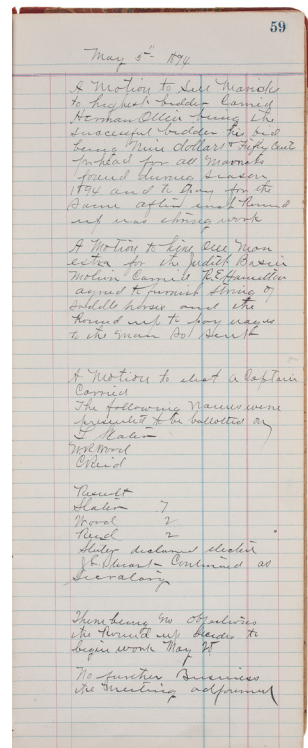 59
May 5th 1894
A Motion to Sell Mavricks
to highest bidder Carried
Herman Otten being the
successful bidder his bid
being Nine dollars & Fifty Cent
pr head for all Mavricks
found during season
1894 and to pay for the
Same after each Round
up was through work
A Motion to hire One Man
extra for the Judith Basin
Motion Carried R.E. Hamilton
agreed to furnish String of
Saddle horses and the
Round up to pay wages
to the Man
A Motion to elect a Captain
Carried
The following Names were
presented to be ballotted on
Slater
Wood
C Reid
Result
Slater 7
Wood 2
Reid 2
Slater declared elected
Stuart Continued as
Secretary
There being no objections
the Round up decides to
begin work May 25
No further Business
the Meeting adjourned